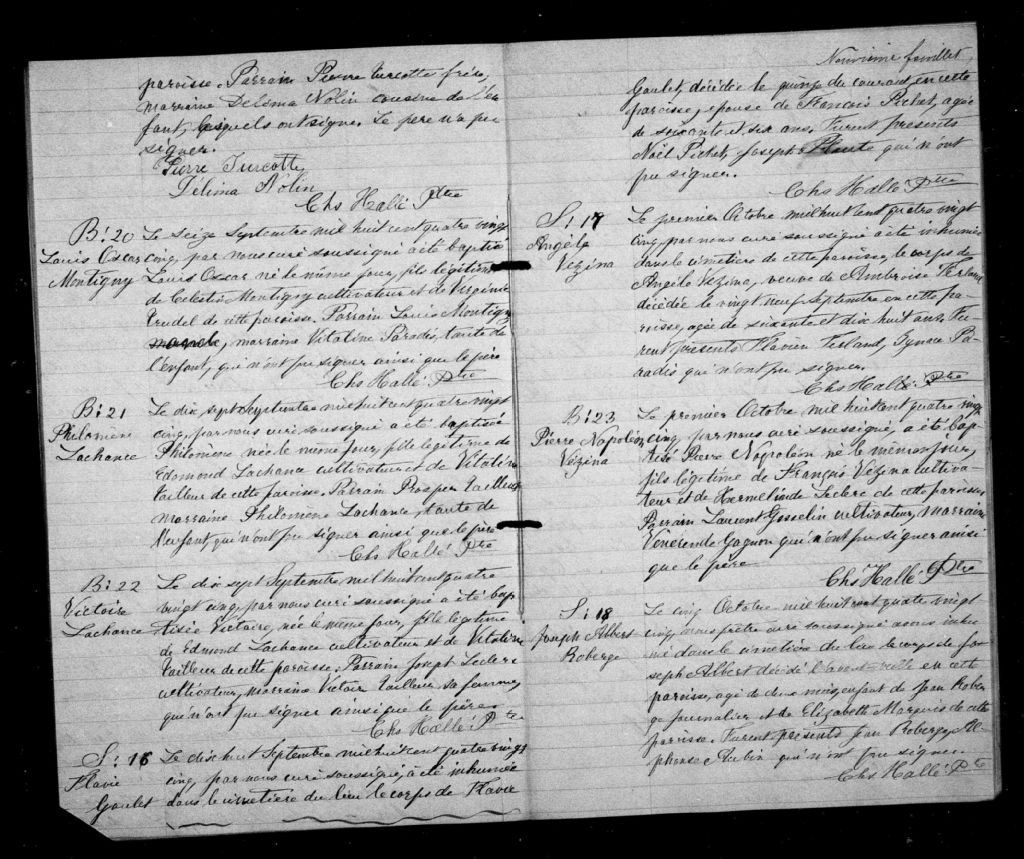 paroisse. Parrain Pierre Turcotte frère,
marraine Delema Nolin cousine de l'en
fant, lesquels ont signé. Le père n'a pu
signer.
Pierre Turcotte
Délima Nolin
Chs Hallé Ptre
B: 20
Louis Oscar
Montigny
Le seize Septembre mil huit cent quatre vingt
cinq, par nous curé soussigné a été baptisé
Louis Oscar né le même jour, fils légitime
de Célestin Montigny cultivateur et de Virginie
Trudel de cette paroisse. Parrain Louis Montigny
marraine Vitaline Paradis, tante de
l'enfant, qui n'ont pu signer ainsi que le père
Chs Hallé Ptre
B: 21
Philomène
Lachance
Le dix sept Septembre mil huit cent quatre vingt
cinq, par nous curé soussigné a été baptisée
Philomene née le même jour, fille légitime de
Edmond Lachance cultivateur et de Vitaline
Tailleur de cette paroisse, Parrain Prosper Tailleur
marraine Philomene Lachance, tante de
l'enfant, qui n'ont pu signer ainsi que le père
Chs Hallé Ptre
B: 22
Victoire
Lachance
Le dix sept Septembre mil huit cent quatre
vingt cinq, par nous curé soussigné a été bap
tisée Victoire, née le même jour, fille légitime
de Edmond Lachance cultivateur et de Vitaline
Tailleur de cette paroisse, Parrain Joseph Leclerc
cultivateur, marraine Victoire Tailleur sa femme,
qui n'ont pu signer ainsi que le père
Chs Hallé Ptre
S: 16
Flavie
Goulet
Le dix huit Septembre mil huit cent quatre vingt
cinq, par nous curé soussigné, a été inhumée
dans le cimetière du lieu le corps de Flavie
Neuvième feuillet
Goulet, décédée le quinze du courant en cette
paroisse, épouse de François Pichet, agée
de soixante et six ans. Furent présents
Noël Pichet, Joseph Plante qui n'ont
pu signer.
Chs Hallé Ptre
S: 17
Angèle
Vézina
Le premier Octobre mil huit cent quatre vingt
cinq, par nous curé soussigné a été inhumée
dans le cimetière de cette paroisse, le corps de
Angèle Vézina, veuve de Ambroise Ferland
décédée le vingt neuf Septembre en cette pa-
roisse, agée de soixante et dix huit ans. Fu-
rent présents Flavien Ferland, Ignace Pa-
radis qui n'ont pu signer.
Chs Hallé Ptre
B: 23
Pierre Napoléon
Vézina
Le premier Octobre mil huit cent quatre vingt
cinq, par nous curé soussigné, a été bap-
tisé Pierre Napoléon né le même jour,
fils légitime de François Vézina cultiva-
teur et de Hermelinde Leclerc de cette paroisse
Parrain Laurent Gosselin cultivateur, marraine
Venerende Gagnon qui n'ont pu signer ainsi
que le père
Chs Hallé Ptre
S: 18
Joseph Albert
Roberge
Le cinq Octobre mil huit cent quatre vingt
cinq, nous prêtre curé soussigné avons inhu
mé dans le cimetière du lieu le corps de Jo
seph Albert décédé l'avant-veille en cette
paroisse, agé de deux mois, enfant de Jean Rober
ge journalier et de Elizabeth Marquis de cette
paroisse. Furent présents Jean Roberge, Al-
phonse Aubin qui n'ont pu signer.
Chs Hallé Ptre